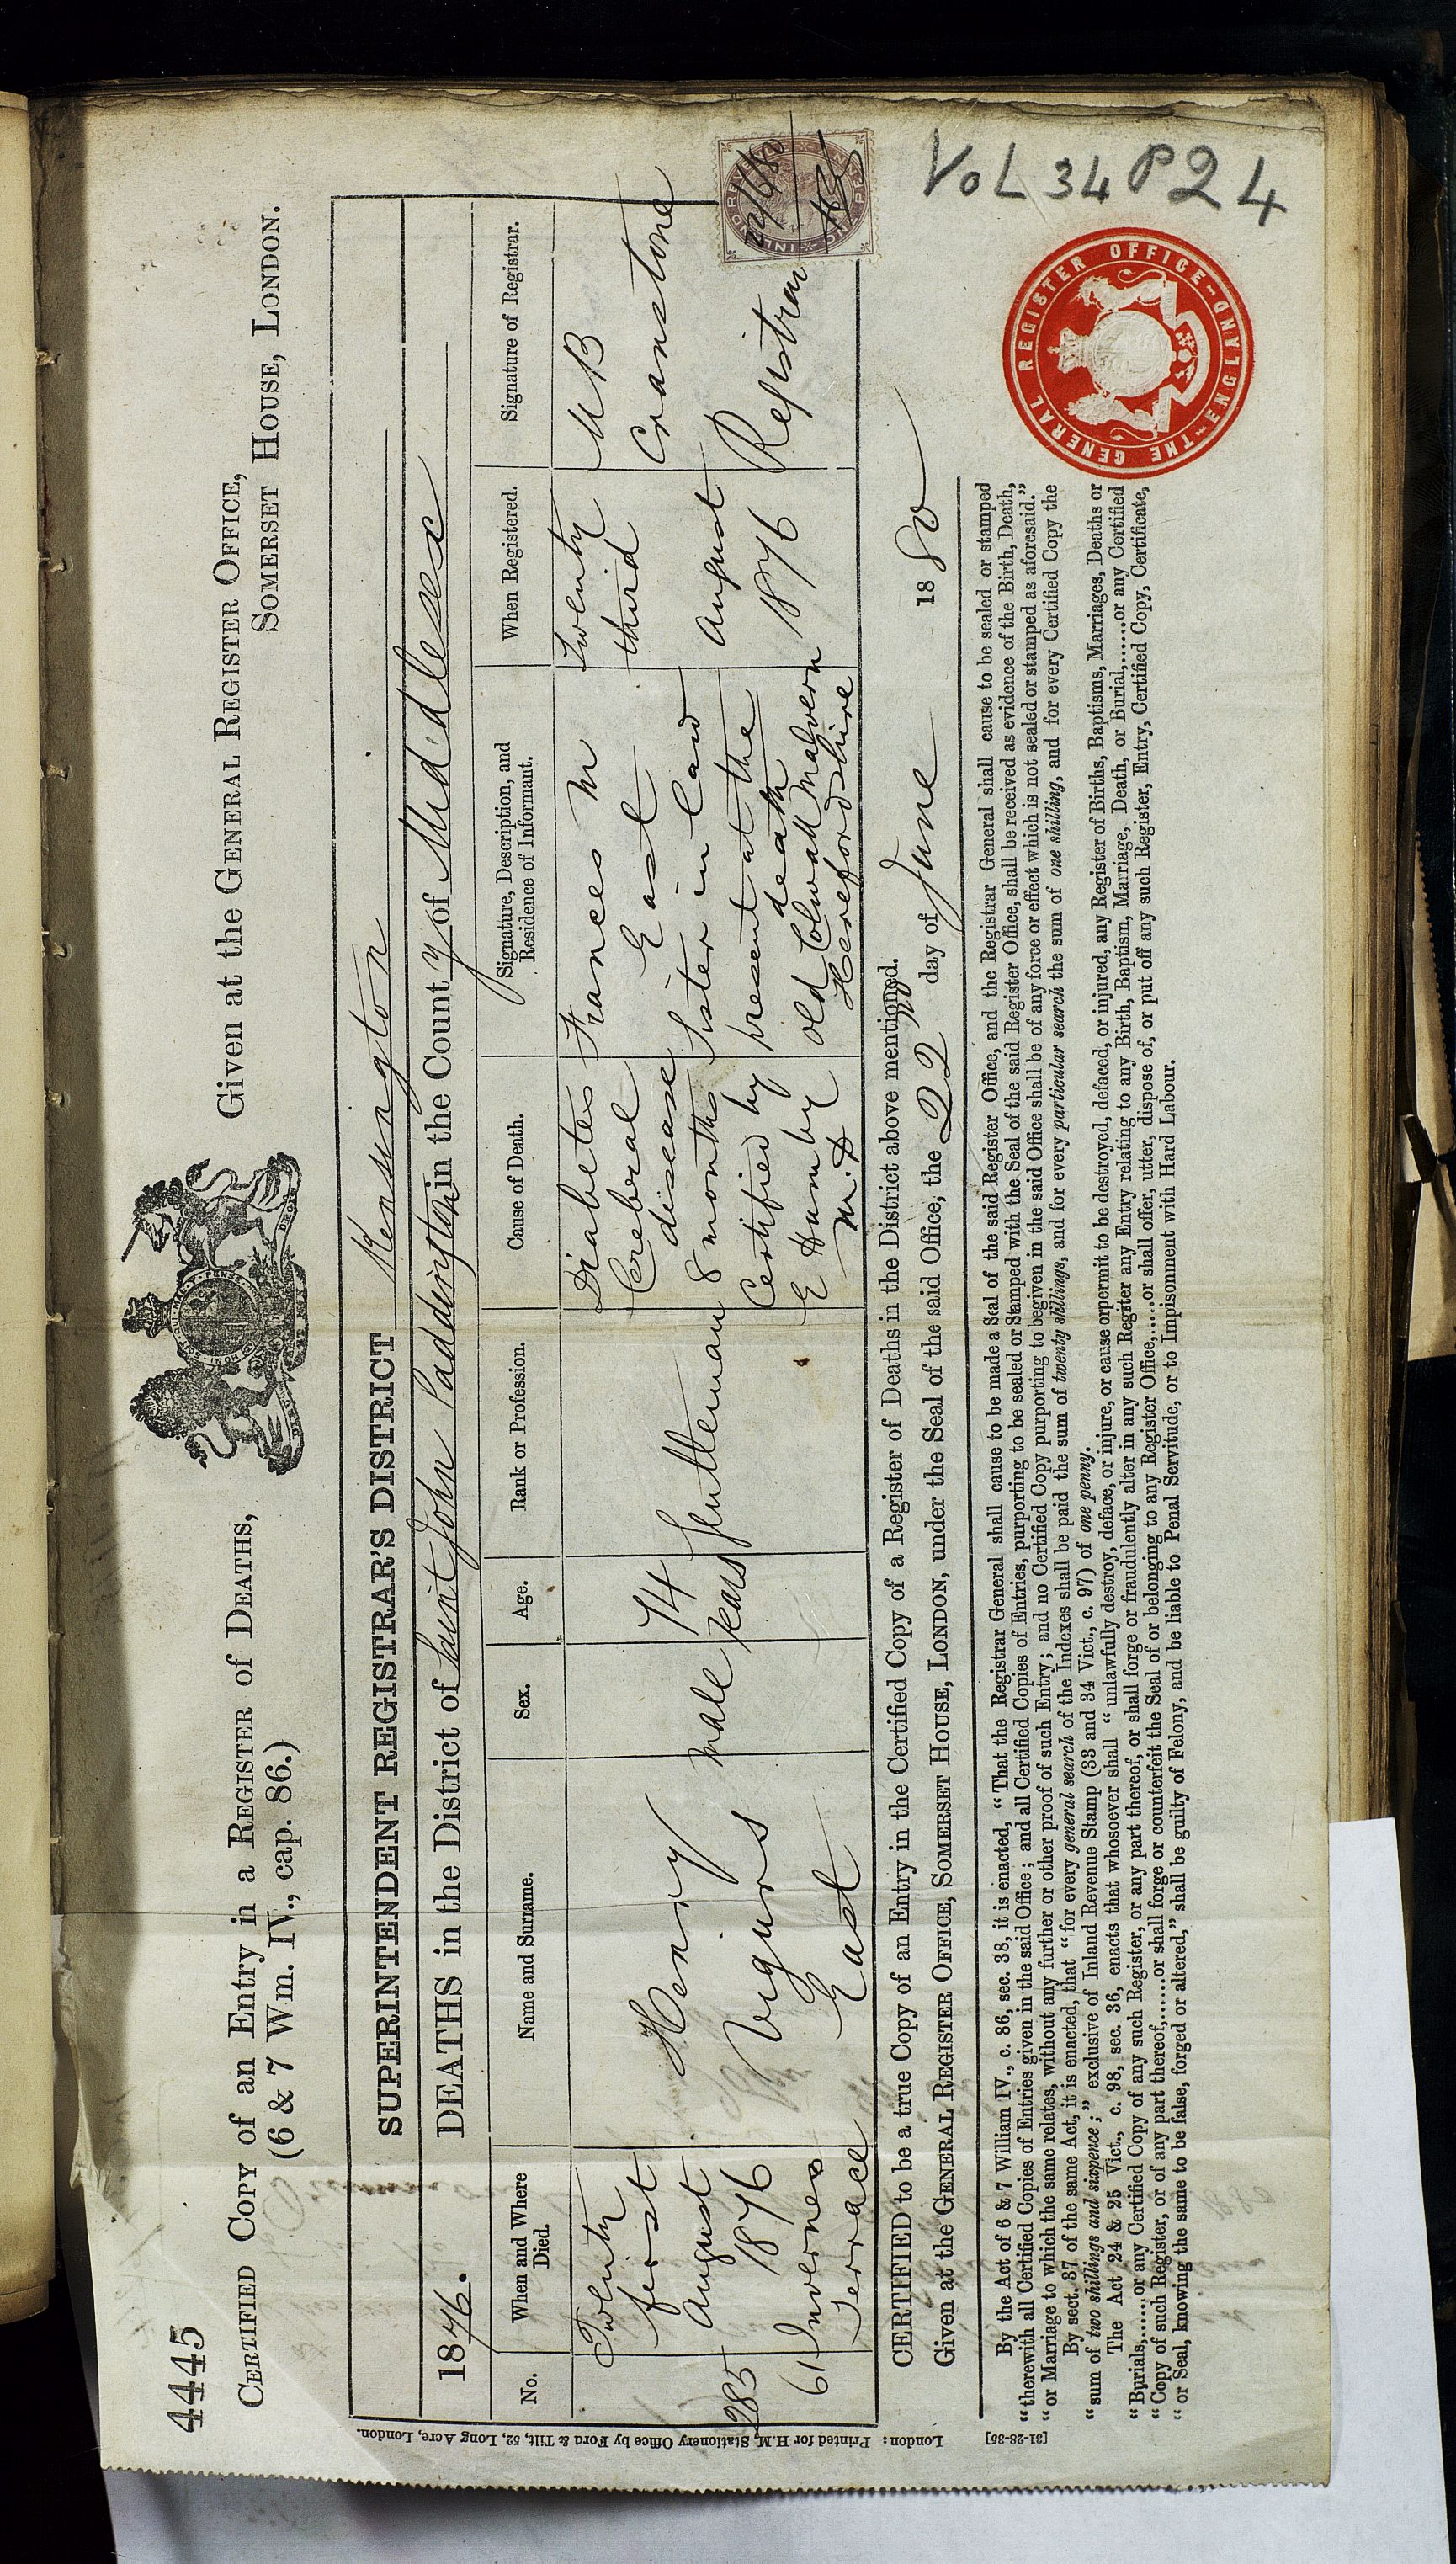 4445
CERTIFIED COPY of an Entry in a REGISTER of DEATHS,
(6 & 7 Wm. IV., cap. 86.)
Given at the GENERAL REGISTER OFFICE,
SOMERSET HOUSE, LONDON.
SUPERINTENDENT REGISTRAR'S DISTRICT Kensington
1876. DEATHS in the District of Saint John Paddington in the County of Middlesex
No.
When and Where
Died.
Name and Surname.
Sex.
Age.
Rank or Profession.
Cause of Death.
Signature, Description, and
Residence of Informant.
When Registered.
Signature of Registrar.
285
Twenty
first
August
1876
61 Inverness
Terrace
Henry
Vigurs
East
Male
74
Years
Gentleman
Diabetes
Cerebral
disease
8 months
Certified by
E Humby
M.D
Frances M
East
Sister in law
present at the
death
Old Colwall Malvern
Herefordshire
Twenty
third
August
1876
M B
Cranstone
Registrar
22/6/80
CERTIFIED to be a true Copy of an Entry in the Certified Copy of a Register of Deaths in the District above mentioned.
Given at the GENERAL REGISTER OFFICE, SOMERSET HOUSE, LONDON, under the Seal of the said Office, the 22nd day of June 1880
By the Act of 6 & 7 William IV., c. 86, sec. 38, it is enacted, "That the Registrar General shall cause to be made a Seal of the said Register Office, and the Registrar General shall cause to be sealed or stamped
"therewith all Certified Copies of Entries given in the said Office; and all Certified Copies of Entries, purporting to be sealed or Stamped with the Seal of the said Register Office, shall be received as evidence of the Birth, Death,
"or Marriage to which the same relates, without any further or other proof of such Entry; and no Certified Copy purporting to begiven in the said Office shall be of any force or effect which is not sealed or stamped as aforesaid."
By sect. 37 of the same Act, it is enacted, that "for every general search of the Indexes shall be paid the sum of twenty shillings, and for every particular search the sum of one shilling, and for every Certified Copy the
"sum of two shillings and sixpence;" exclusive of Inland Revenue Stamp (33 and 34 Vict., c. 97) of one penny.
The Act 24 & 25 Vict., c. 98, sec. 36, enacts that whosoever shall "unlawfully destroy, deface, or injure, or cause orpermit to be destroyed, defaced, or injured, any Register of Births, Baptisms, Marriages, Deaths or
"Burials,......or any Certified Copy of any such Register, or any part thereof, or shall forge or fraudulently alter in any such Register any Entry relating to any Birth, Baptism, Marriage, Death, or Burial,......or any Certified
"Copy of such Register, or of any part thereof,......or shall forge or counterfeit the Seal of or belonging to any Register Office,......or shall offer, utter, dispose of, or put off any such Register, Entry, Certified Copy, Certificate,
"or Seal, knowing the same to be false, forged or altered," shall be guilty of Felony, and be liable to Penal Servitude, or to Impisonment with Hard Labour.
London: Printed for H.M. Stationery Office by Ford & Tilt, 52, Long Acre, London.
[31-28-35]
THE GENERAL REGISTER OFFICE-ENGLAND
VOL 34 P 24